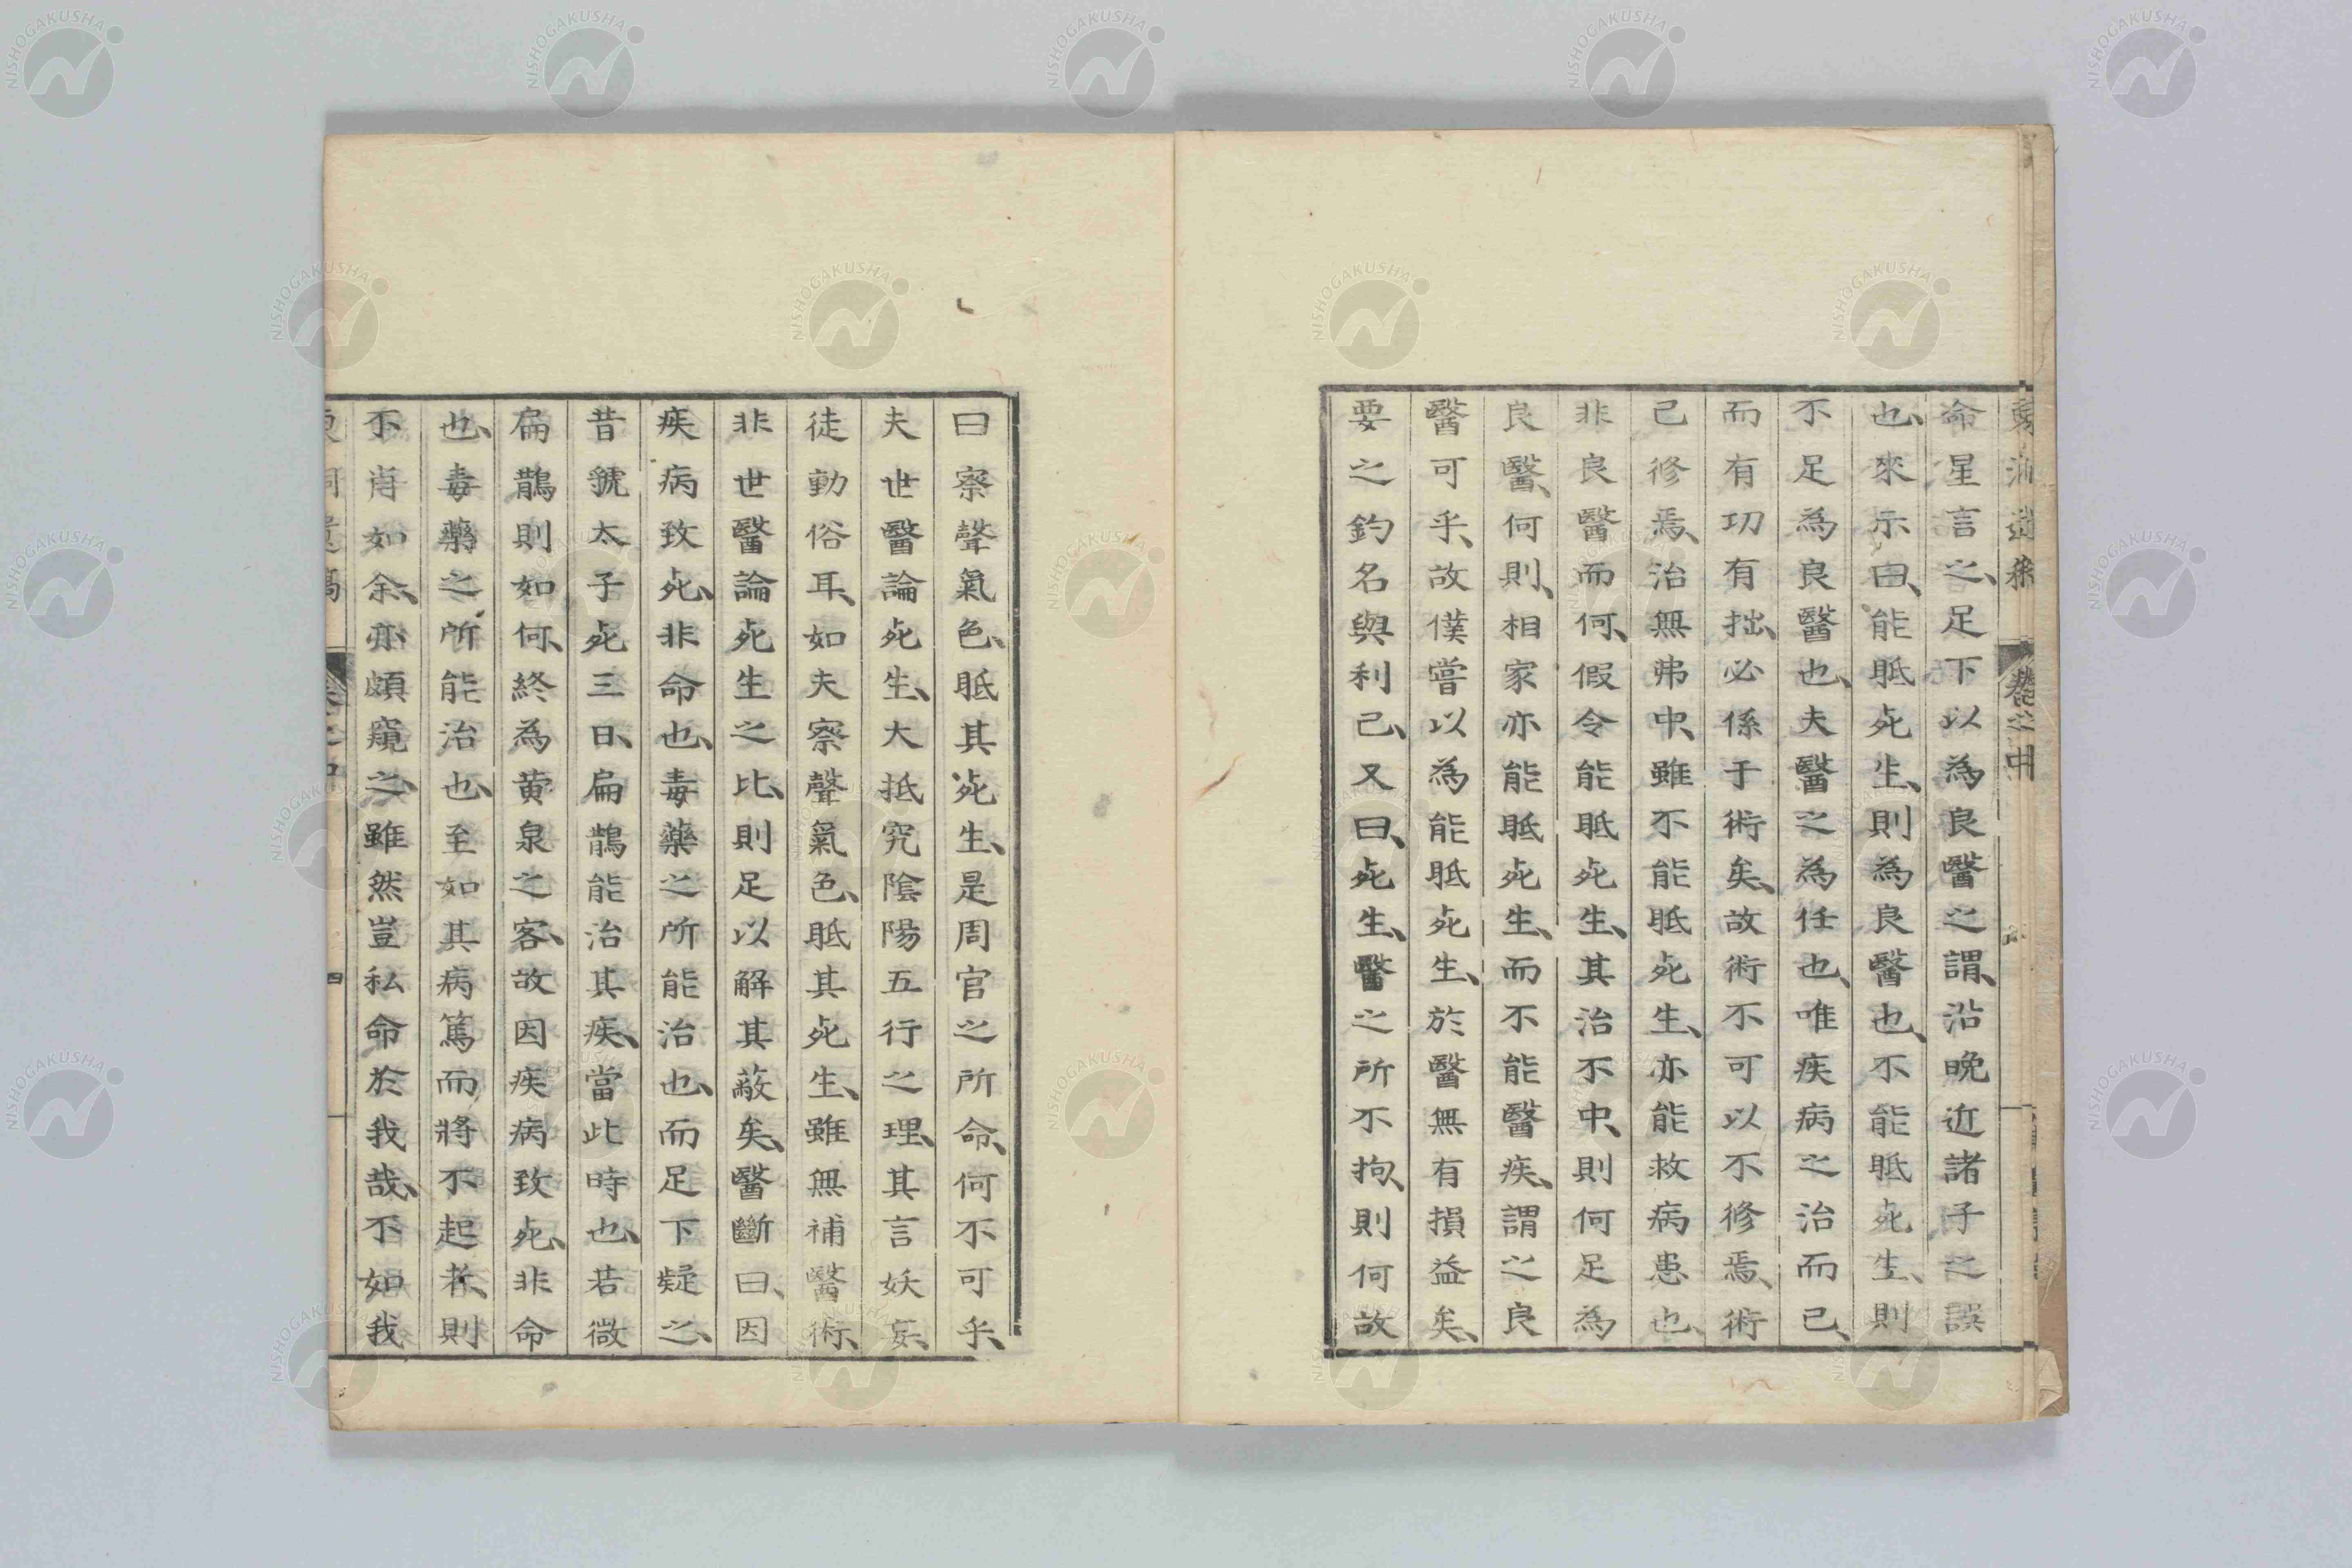 命星言之、足下以為良醫之謂、沿晚近諸子之誤
也、來示曰、能眡死生、則為良醫也、不能眡死生、則
不足為良醫也、夫醫之為任也、唯疾病之治而已、
而有功有拙、必係于術矣、故術不可以不修焉、術
已修焉、治無弗中、雖不能眡死生、亦能救病患也、
非良醫而何、假令能眡死生、其治不中、則何足為
良醫、何則、相家亦能眡死生、而不能醫疾、謂之良
醫可乎、故僕嘗以為能眡死生、於醫無有損益矣、
要之釣名與利己、又曰、死生、醫之所不拘、則何故
曰察聲氣色、眡其死生、是周官之所命、何不可乎、
夫世醫論死生、大抵究陰陽五行之理、其言妖妄、
徒動俗耳、如夫察聲氣色、眡其死生、雖無補醫術、
非世醫論死生之比、則足以解其蔽矣、醫斷曰、因
疾病致死、非命也、毒藥之所能治也、而足下疑之、
昔虢太子死三日、扁鵲能治其疾、當此時也、若微
扁鵲則如何、終為黄泉之客、故因疾病致死、非命
也、毒藥之所能治也、至如其病篤而將不起者、則
不肖如余、亦頗窺之、雖然豈私命於我哉、不如我
卷之中
四
NISHOGAKUSHA